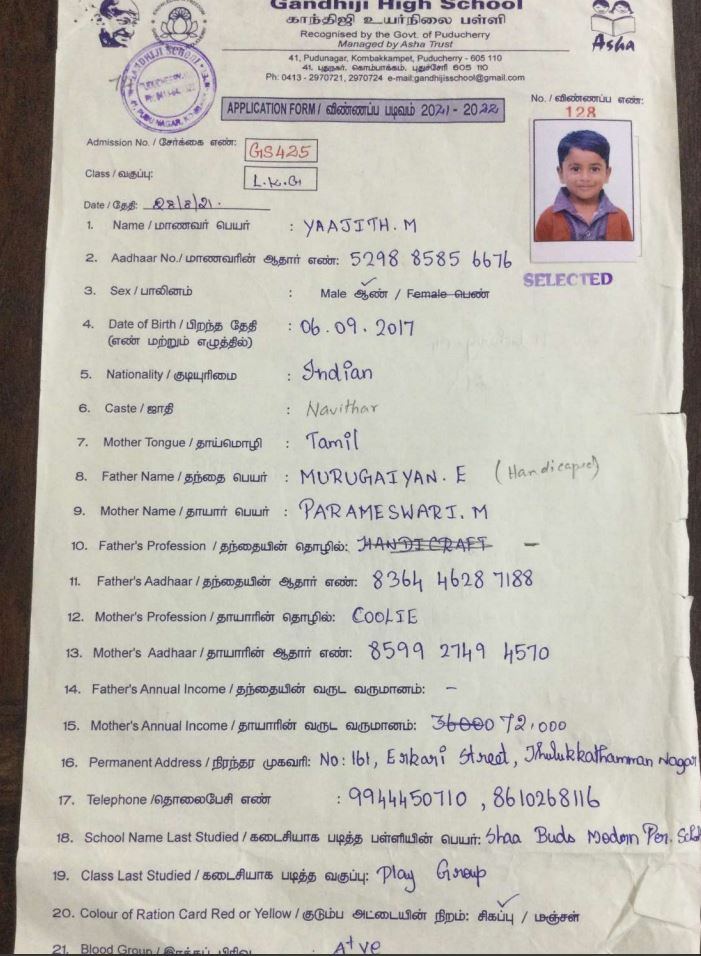 Gandhiji High School
காந்திஜி உயர்நிலை பள்ளி
Recognised by the Govt. of Puducherry
Managed by Asha Trust
Asha
41, Pudunagar, Kombakkampet, Puducherry - 605 110
41, புதுநகர், கொம்பாக்கம், புதுச்சேரி 605 110
Ph: 0413 - 2970721, 2970724 e-mail:gandhijisschool@gmail.com
APPLICATION FORM / விண்ணப்ப படிவம் 2021 - 2022
No. / விண்ணப்ப எண்:
128
Admission No. / சேர்க்கை எண்: GS425
Class / வகுப்பு: L.K.G
Date / தேதி: 28/8/21.
SELECTED
1. Name / மாணவர் பெயர் : YAAJITH. M
2. Aadhaar No./ மாணவரின் ஆதார் எண்: 5298 8585 6676
3. Sex / பாலினம் : Male ஆண் / Female பெண்
4. Date of Birth / பிறந்த தேதி : 06.09.2017
(எண் மற்றும் எழுத்தில்)
5. Nationality / குடியுரிமை : Indian
6. Caste / ஜாதி : Navithar
7. Mother Tongue / தாய்மொழி : Tamil
8. Father Name / தந்தை பெயர் : MURUGAIYAN. E (Handicaped)
9. Mother Name / தாயார் பெயர் : PARAMESWARI. M
10. Father's Profession / தந்தையின் தொழில்: HANDICRAFT -
11. Father's Aadhaar / தந்தையின் ஆதார் எண்: 8364 4628 7188
12. Mother's Profession / தாயாரின் தொழில்: COOLIE
13. Mother's Aadhaar / தாயாரின் ஆதார் எண்: 8599 2749 4570
14. Father's Annual Income / தந்தையின் வருட வருமானம்: -
15. Mother's Annual Income / தாயாரின் வருட வருமானம்: 36000 72,000
16. Permanent Address / நிரந்தர முகவரி: No: 161, Erikari Street, Thulukkathamman Nagar
17. Telephone /தொலைபேசி எண் : 9944450710 , 8610268116
18. School Name Last Studied / கடைசியாக படித்த பள்ளியின் பெயர்: Shaa Buds Modern
19. Class Last Studied / கடைசியாக படித்த வகுப்பு: Play Group
20. Colour of Ration Card Red or Yellow / குடும்ப அட்டையின் நிறம்: சிகப்பு / மஞ்சள்
21. Blood Group / இரத்தப் பிரிவு : A+ve